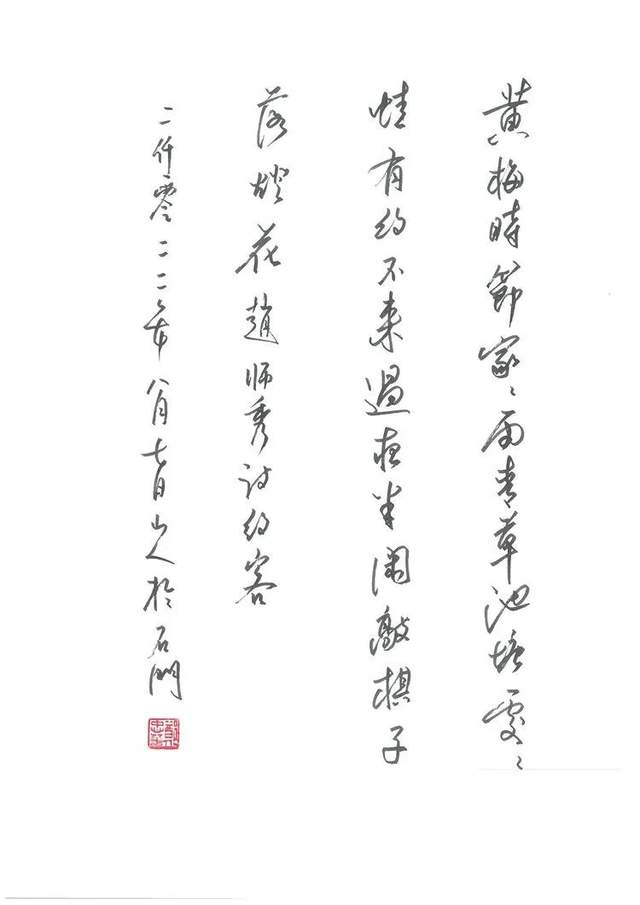 黄梅時節家〻雨青草池塘處〻
蛙有約不来過夜半閑敲棋子
落燈花趙師秀詩約客
二仟零二二年八月七日山人於石門